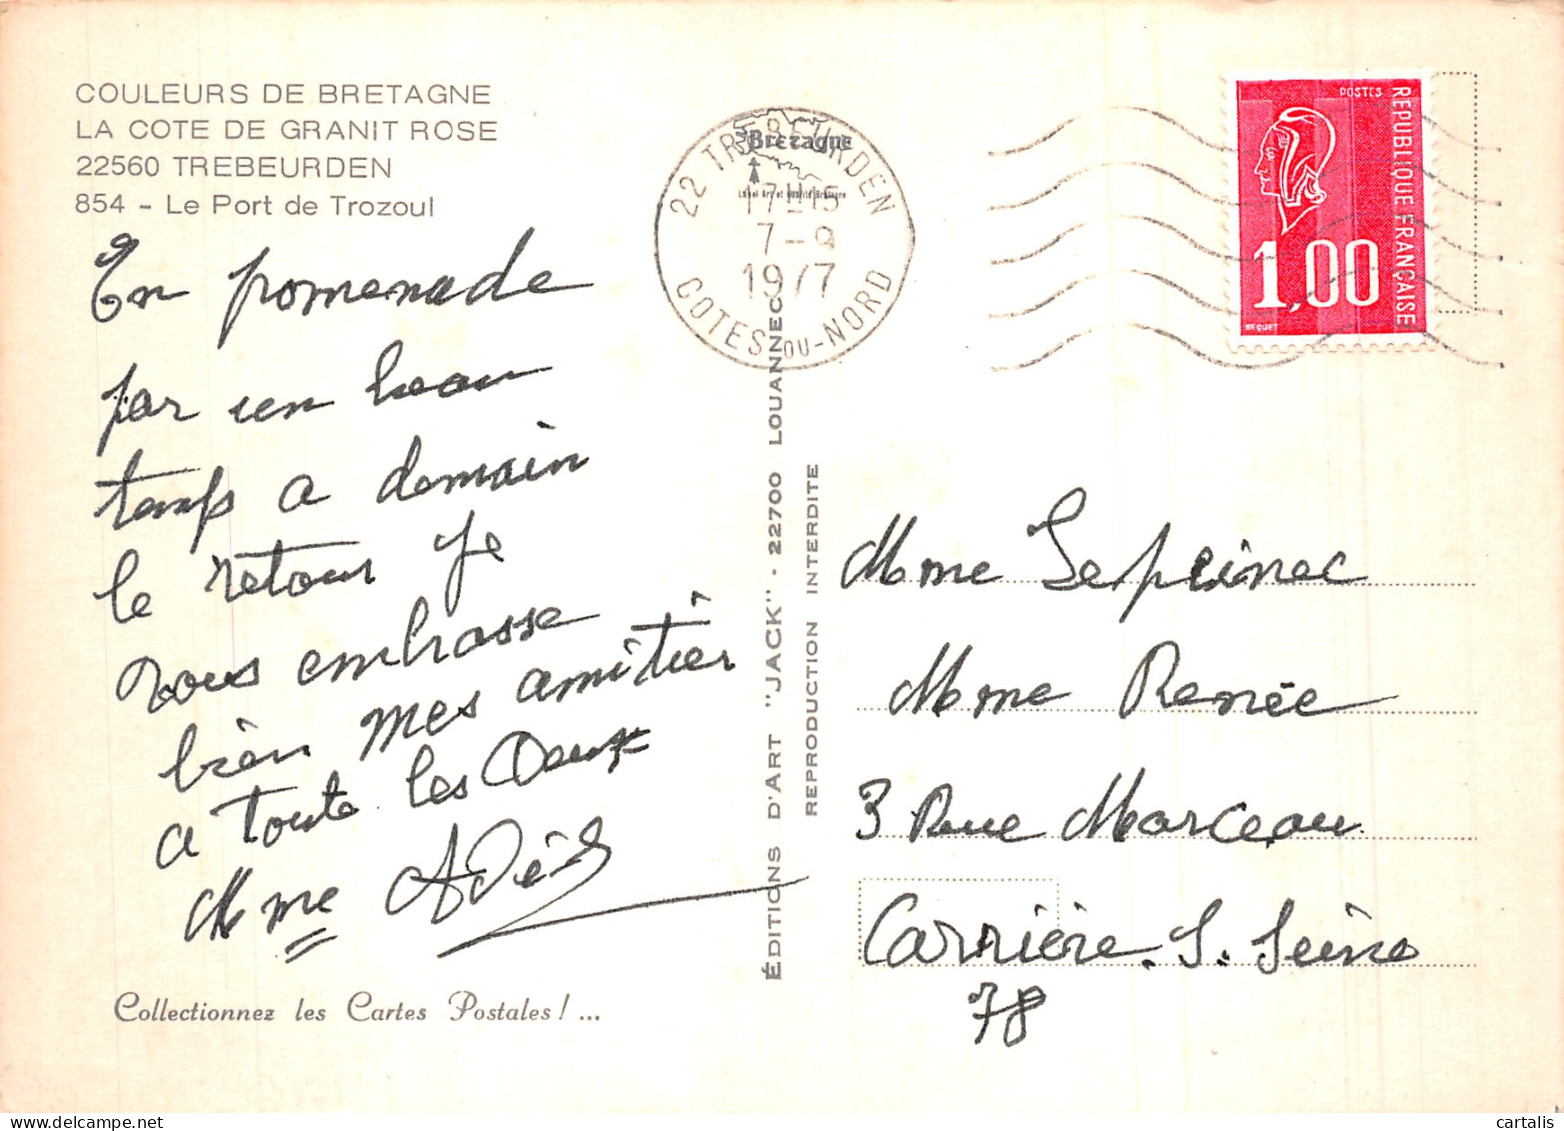 COULEURS DE BRETAGNE
LA COTE DE GRANIT ROSE
22560 TREBEURDEN
854 - Le Port de Trozoul
En promenade
par un beau
temps a demain
le retour je
vous embrasse
bien mes amitiés
a toute les Deux
Mme
Collectionnez les Cartes Postales ! ...
22 TREBEURDEN
17H15
7-9
1977
COTES DU-NORD
Bretagne
ÉDITIONS D'ART "JACK" - 22700 LOUANNEC
REPRODUCTION INTERDITE
POSTES
REPUBLIQUE FRANÇAISE
1,00
BEQUET
Mme
Mme Renée
3 Rue Marceau
Carrière. S. Seine
78
cartalis